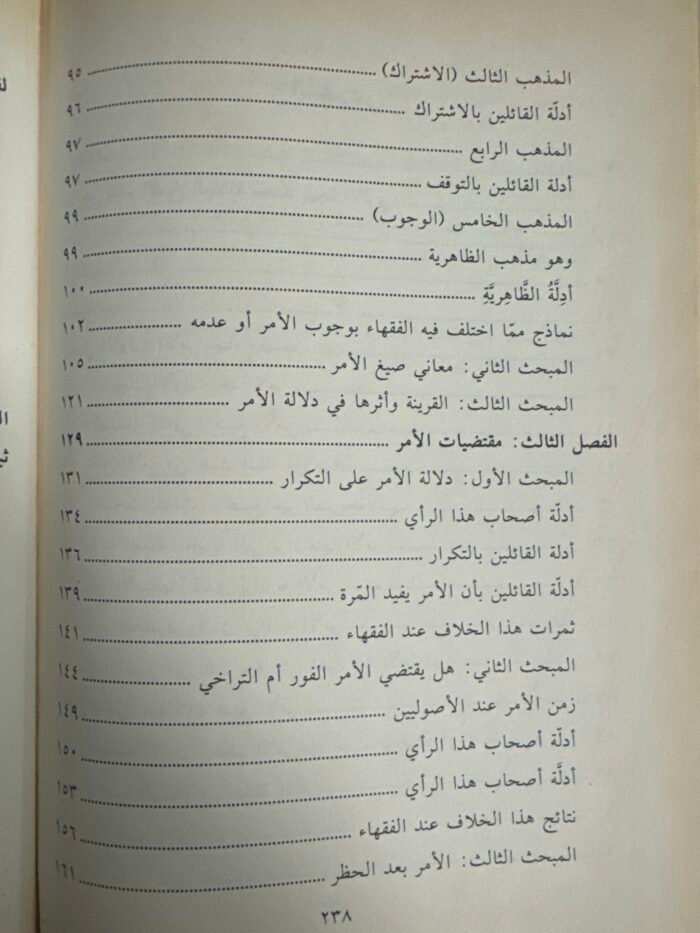 المذهب الثالث (الاشتراك) ٩٥
أدلّة القائلين بالاشتراك ٩٦
المذهب الرابع ٩٧
أدلة القائلين بالتوقف ٩٧
المذهب الخامس (الوجوب) ٩٩
وهو مذهب الظاهرية ٩٩
أدِلَّةُ الظَّاهِرِيَّةِ ١٠٠
نماذج ممّا اختلف فيه الفقهاء بوجوب الأمر أو عدمه ١٠٢
المبحث الثاني: معاني صيغ الأمر ١٠٥
المبحث الثالث: القرينة وأثرها في دلالة الأمر ١٢١
الفصل الثالث: مقتضيات الأمر ١٢٩
المبحث الأول: دلالة الأمر على التكرار ١٣١
أدلّة أصحاب هذا الرأي ١٣٤
أدلة القائلين بالتكرار ١٣٦
أدلّة القائلين بأن الأمر يفيد المّرة ١٣٩
ثمرات هذا الخلاف عند الفقهاء ١٤١
المبحث الثاني: هل يقتضي الأمر الفور أم التراخي ١٤٤
زمن الأمر عند الأصوليين ١٤٩
أدلّة أصحاب هذا الرأي ١٥٠
أدلَّة أصحاب هذا الرأي ١٥٣
نتائج هذا الخلاف عند الفقهاء ١٥٦
المبحث الثالث: الأمر بعد الحظر ١٦١
٢٣٨